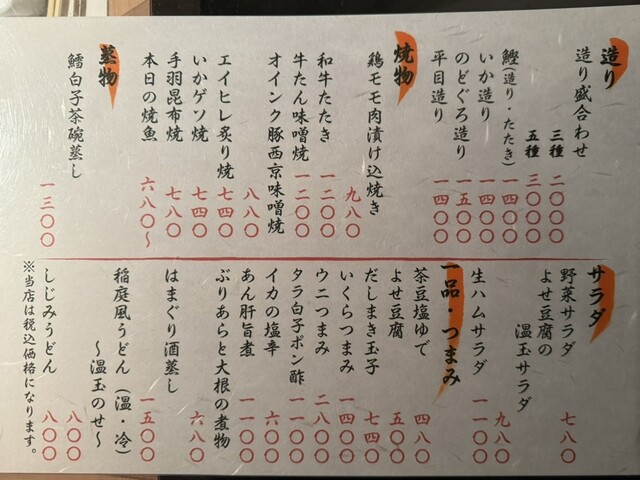 造り
造り盛合わせ
三種 二〇〇〇
五種 三〇〇〇
鰹(造り・たたき) 一四〇〇
いか造り 一四〇〇
のどぐろ造り 一五〇〇
平目造り 一四〇〇
焼物
鶏モモ肉漬け込焼き 九八〇
和牛たたき 一二〇〇
牛たん味噌焼 一二〇〇
オインク豚西京味噌焼 八八〇
エイヒレ炙り焼 七四〇
いかゲソ焼 七四〇
手羽昆布焼 七八〇
本日の焼魚 六八〇〜
蒸物
鱈白子茶碗蒸し 一三〇〇
サラダ
野菜サラダ 七八〇
よせ豆腐の
温玉サラダ 九八〇
生ハムサラダ 一一〇〇
一品・つまみ
茶豆塩ゆで 四八〇
よせ豆腐 五〇〇
だしまき玉子 七四〇
いくらつまみ 一四〇〇
ウニつまみ 二八〇〇
タラ白子ポン酢 一一〇〇
イカの塩辛 六〇〇
あん肝旨煮 一一〇〇
ぶりあらと大根の煮物 六八〇
はまぐり酒蒸し 一五〇〇
稲庭風うどん(温・冷)
〜温玉のせ〜 八〇〇
しじみうどん 八〇〇
※当店は税込価格になります。